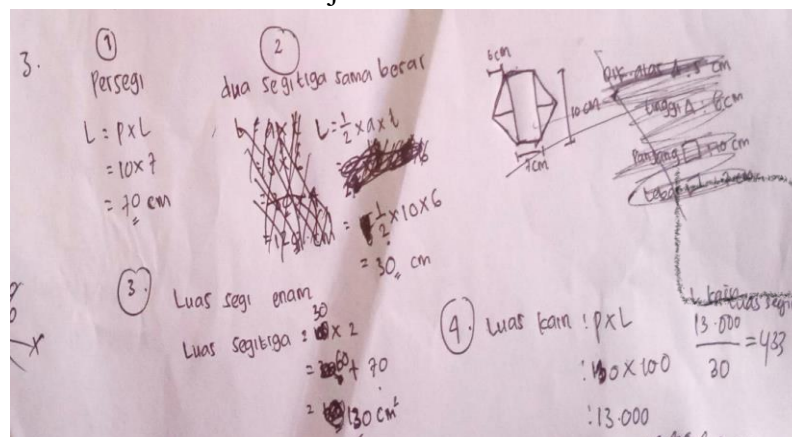 3.
①
Persegi
L = p x L
= 10 x 7
= 70 cm
②
dua segitiga sama besar
L = 1/2 x a x t
= 1/2 x 10 x 6
= 30 cm
6cm
10 cm
7cm
tinggi A : 6cm
Panjang
③.
Luas segi enam
30
Luas segitiga : x 2
= 60 + 70
= 130 cm²
④ Luas kain : p x L
: 130 x 100
: 13.000
13.000/30 = 433